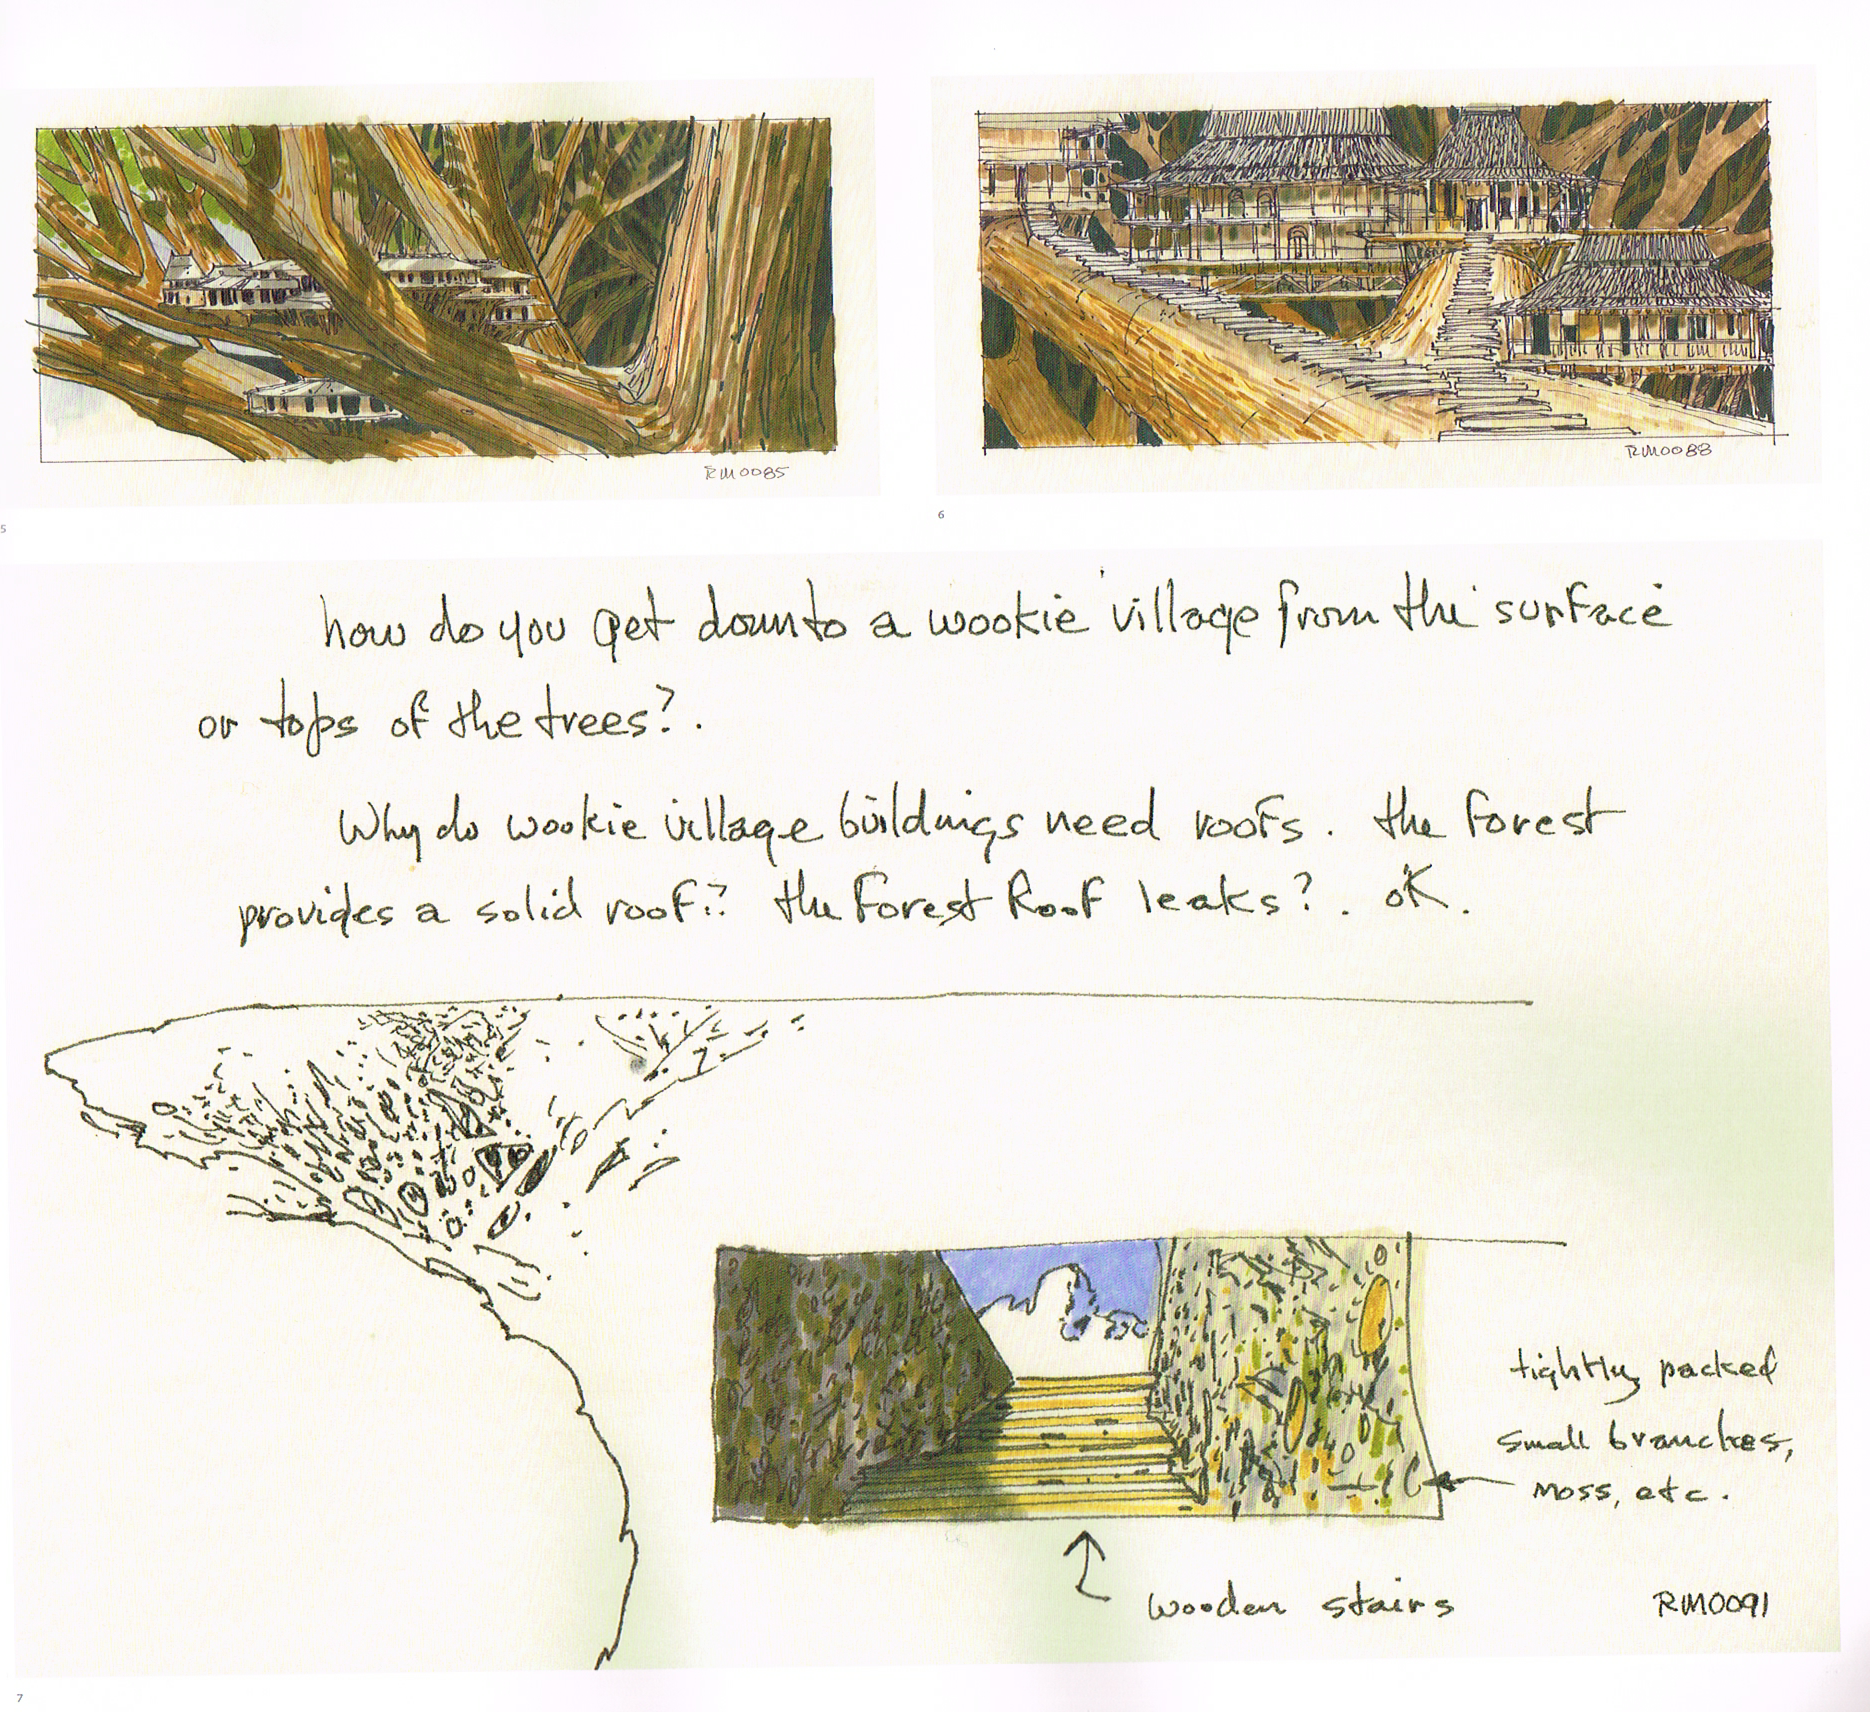 RM0085
RM0088
5
6
how do you get down to a wookie village from the surface
or tops of the trees?.
Why do wookie village buildings need roofs. the forest
provides a solid roof?? the Forest Roof leaks?. OK.
tightly packed
small branches,
moss, etc.
wooden stairs
RM0091
7